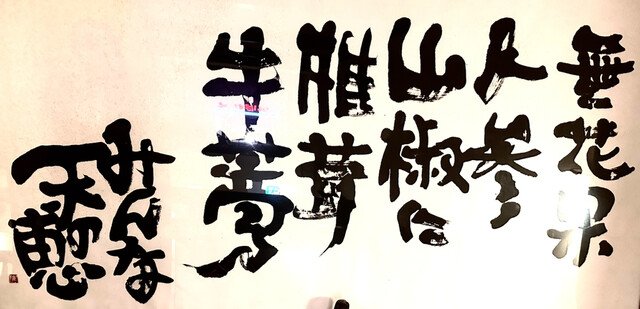 無花果
人参
山椒に
椎茸
牛蒡
みんな
天の恵